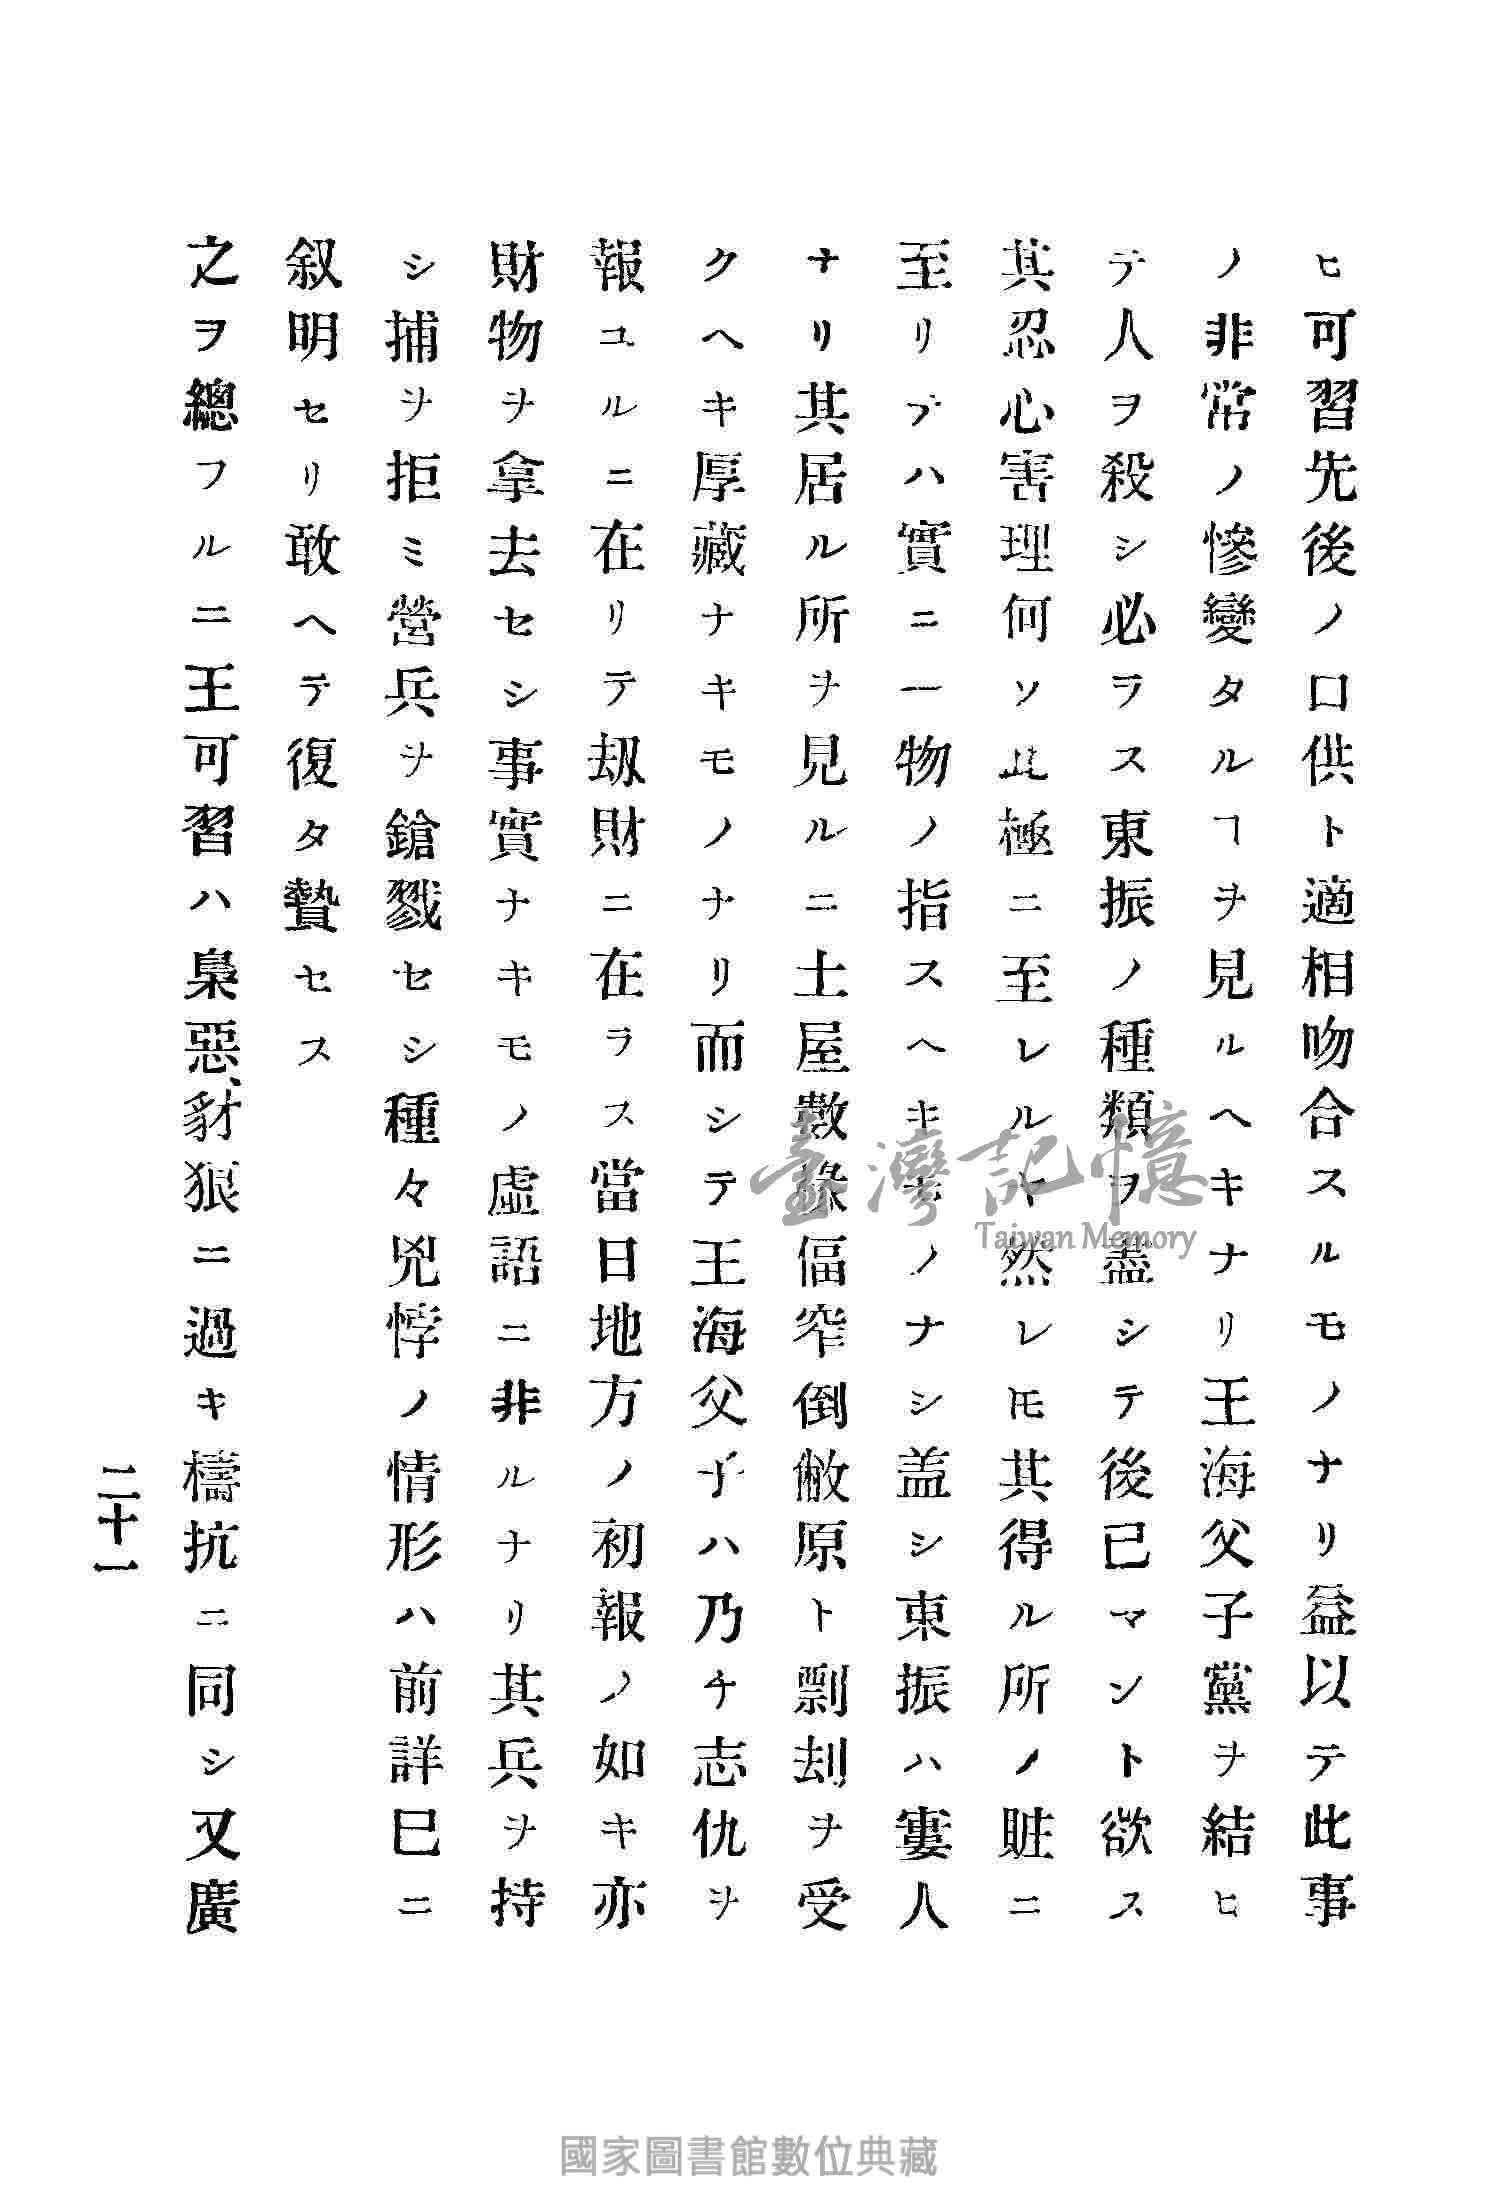 ヒ可習先後ノ口供ト適相吻合スルモノナリ益以テ此事
ノ非常ノ慘變タルヿヲ見ルヘキナリ王海父子黨ヲ結ヒ
テ人ヲ殺シ必ヲス東振ノ種類ヲ盡シテ後已マント欲ス
其忍心害理何ソ此極ニ至レルヤ然レ𪜈其得ル所ノ賍ニ
至リテハ實ニ一物ノ指スヘキモノナシ盖シ東振ハ寠人
ナリ其居ル所ヲ見ルニ土屋數椽偪窄倒敝原ト剽刦ヲ受
クヘキ厚藏ナキモノナリ而シテ王海父子ハ乃チ志仇ヲ
報ユルニ在リテ刼財ニ在ラス當日地方ノ初報ノ如キ亦
財物ヲ拿去セシ事實ナキモノ虛語ニ非ルナリ其兵ヲ持
シ捕ヲ拒ミ營兵ヲ鎗戮セシ種々兇悖ノ情形ハ前詳巳ニ
叙明セリ敢ヘテ復タ贅セス
之ヲ總フルニ王可習ハ梟惡、豺狼ニ過キ檮抗ニ同シ又廣
二十一
臺灣記憶
Taiwan Memory
國家圖書館數位典藏